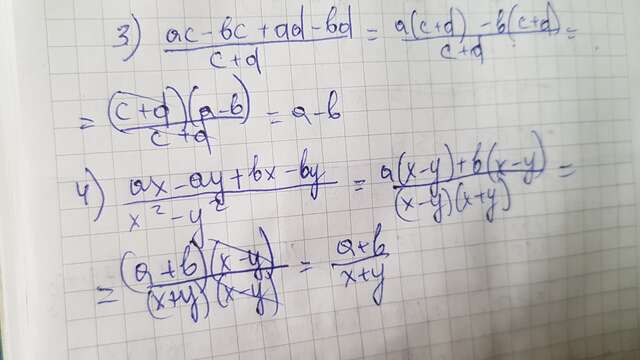 3) (ac - bc + ad - bd)/(c + d) = (a(c+d) - b(c+d))/(c+d) =
= ((c+d)(a-b))/(c+d) = a - b
4) (ax - ay + bx - by)/(x² - y²) = (a(x-y) + b(x-y))/((x-y)(x+y)) =
= ((a+b)(x-y))/((x+y)(x-y)) = (a+b)/(x+y)